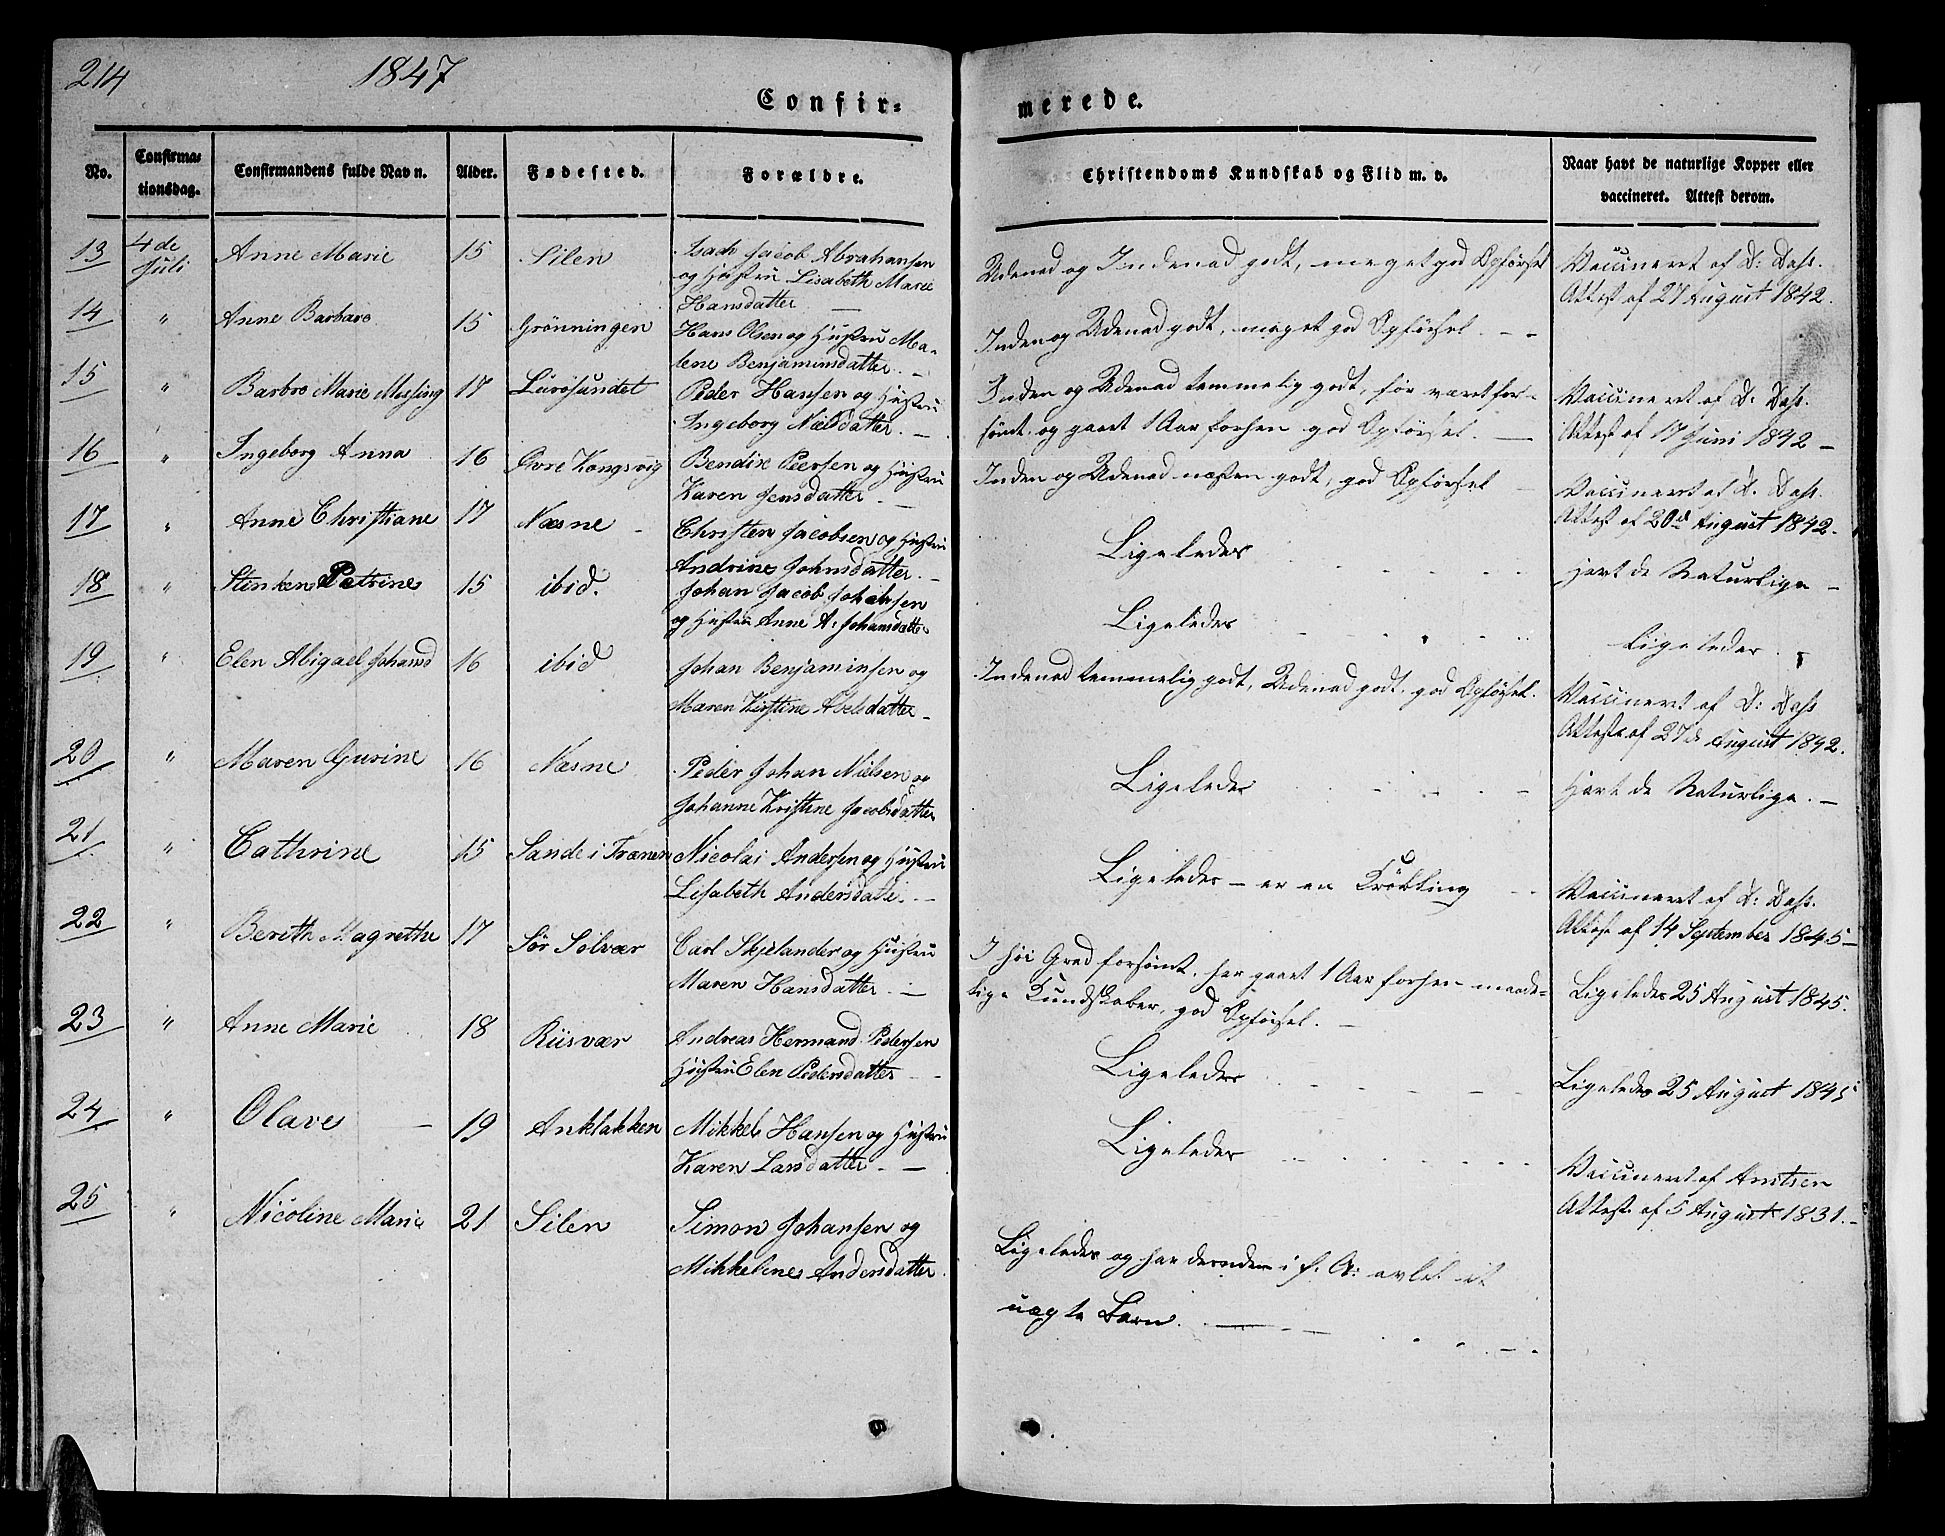 214 1847
Confir- merede.
No. Confirma-tionsdag. Confirmandens fulde Navn. Alder. Fødested. Forældre. Christendoms Kundskab og Flid m. v. Naar havt de naturlige Kopper eller vaccineret. Attest derom.
13 4de Juli Anne Marie 15 Silen Isach Jacob Abrahamsen
og Hustru Lisabeth Marie
Hansdatter
Udenad og Indenad godt, meget god Opførsel
Vaccineret af D: Dass.
Attest af 27 August 1842.
14 " Anne Barbara 15 Grønningen Hans Olsen og Hustru Ma-
lene Benjaminsdatter. -
Inden og Udenad godt, meget god Opførsel. - -
15 " Barbro Marie Messing 17 Lurøsundet Peder Hansen og Hustru
Ingeborg Nielsdatter. -
Inden og Udenad temmelig godt, før været for-
sømt og gaaet 1 Aar forhen god Opførsel. -
Vaccineret af D: Dass.
Attest af 17 Juni 1842 -
16 " Ingeborg Anna 16 Øvre Kongsvig Bendix Peersen og Hustru
Karen Jensdatter -
Inden og Udenad næsten godt, god Opførsel
Vaccineret af D. Dass.
Attest af 20de August 1842.
17 " Anne Christiane 17 Næsne - Christen Jacobsen og Hustru
Andrine Johnsdatter. -
Ligeledes
Havt de Naturlige -
18 " Stinken Petrine 15 ibid. Johan Jacob Johansen
og Hustru Anne A: Johansdatter
Ligeledes
Ligeledes.
19 " Elen Abigael Johansd 16 ibid Johan Benjaminsen og
Maren Kirstine Abelsdatter -
Indenad temmelig godt, Udenad godt, god Opførsel.
Vaccineret af D: Dass
Attest af 27de August 1842.
20 " Maren Gurine 16 Næsne Peder Johan Nielsen og
Johanne Kristine Jacobsdatter
Ligeledes
Havt de Naturlige. -
21 " Cathrine 15 Sande i Trænen Nicolai Andersen og Hustru
Lisabeth Andersdatter. -
Ligeledes - er en Krøbling
Vaccineret af D: Dass.
Attest af 14 September 1845 -
22 " Berith Magrethe 17 Sør Solvær Carl Skjelander og Hustru
Maren Hansdatter. -
I høi Grad forsømt, har gaaet 1 Aar forhen maade-
lige Kundskaber, god Opførsel. -
Ligeledes 25 August 1845.
23 " Anne Marie 18 Riisvær Andreas Hermand Pedersen
Hustru Elen Pedersdatter -
Ligeledes
Ligeledes 25 August 1845
24 " Olave - 19 Anklakken Mikkel Hansen og Hustru
Karen Larsdatter. -
Ligeledes
Vaccineret af
Attest af 5 August 1831. -
25 " Nicoline Marie 21 Silen Simon Johansen og
Mikkeline Andersdatter.
Ligeledes og har desuden i f. A: avlet et
uægte Barn.